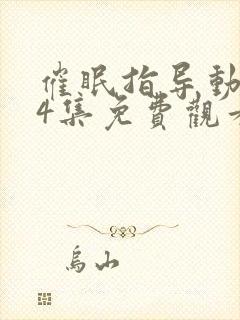 催眠指导動
4集免費觀
烏山